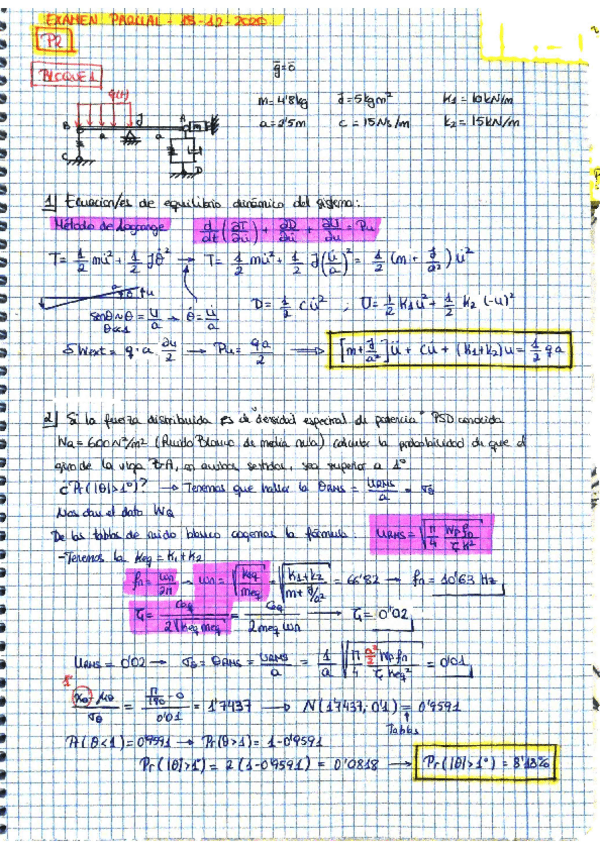 EXAMEN PARCIAL - 18-12-2020
P2
ḡ = ō
BLOQUE 1
q(t)
m = 4'8kg J = 5kgm² K1 = 10kN/m
a = 2'5m c = 15Ns/m k2 = 15kN/m
B a a A m
C D
1 Ecuacion/es de equilibrio dinámico del sistema:
Método de Lagrange d/dt (∂T/∂u̇) + ∂D/∂u̇ + ∂U/∂u = Pu
T = 1/2 mu̇² + 1/2 Jθ̇² → T = 1/2 mu̇² + 1/2 J(u̇/a)² = 1/2 (m + J/a²) u̇²
a θ u
senθ ≈ θ = u/a → θ̇ = u̇/a D = 1/2 cu̇² ; U = 1/2 K1u² + 1/2 k2 (-u)²
θ<<1
δWext = q·a ∂u/2 → Pu = qa/2 ⇒ [m + J/a²]ü + cu̇ + (k1+k2)u = 1/2 qa
2 Si la fuerza distribuida es de densidad espectral de potencia PSD conocida
Wq = 600N²/m² (Ruido Blanco de media nula) calcular la probabilidad de que el
giro de la viga BA, en ambos sentidos, sea superior a 1°
¿Pr(|θ|>1°)? → Tenemos que hallar la θRMS = uRMS/a = σθ
Nos dan el dato Wq
De las tablas de ruido blanco cogemos la fórmula: uRMS = √(π/4 Wp fn/ζ K²)
- Tenemos la Keq = K1 + K2
fn = ωn/2π → ωn = √(keq/meq) = √((k1+k2)/(m + J/a²)) = 66'82 → fn = 10'63 Hz
ζ = ceq/2√(keq meq) = ceq/2meq ωn → ζ = 0'02
uRMS = 0'02 → σθ = θRMS = uRMS/a = 1/a √(π/4 a²/2 Wp fn/ζ Keq²) = 0'01
1°
(xθ - μθ)/σθ = (π/180 - 0)/0'01 = 1'7437 → N(1'7437, 0'1) = 0'9591
Tablas
Pr(θ<1) = 0'9591 → Pr(θ>1) = 1 - 0'9591
Pr(|θ|>1°) = 2(1-0'9591) = 0'0818 → Pr(|θ|>1°) = 8'18%